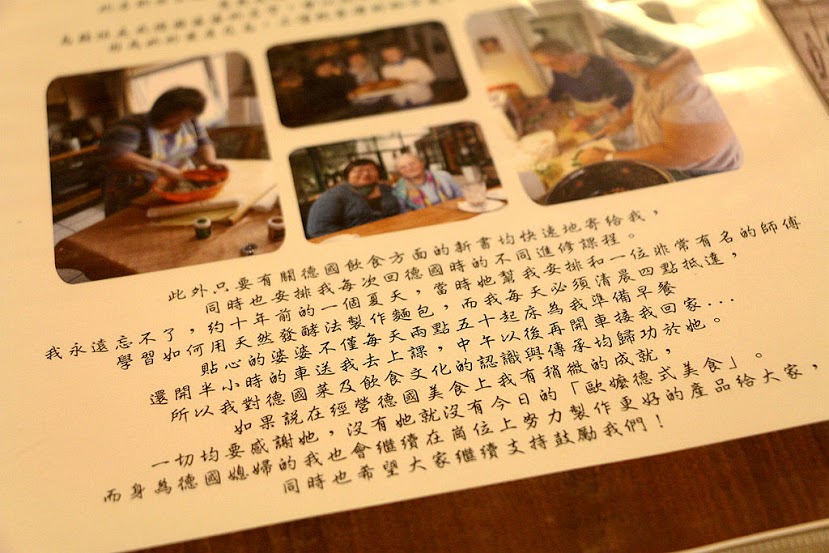 此外只要有關德國飲食方面的新書均快速地寄給我，
同時也安排我每次回德國時的不同進修課程。
我永遠忘不了，約十年前的一個夏天，當時她幫我安排和一位非常有名的師傅
學習如何用天然發酵法製作麵包，而我每天必須清晨四點抵達，
點心的婆婆不僅每天兩點五十起床為我準備早餐
還開半小時的車送我去上課，中午以後再開車接我回家...
所以我對德國菜及飲食文化的認識與傳承均歸功於她。
如果說在經營德國美食上我有稍微的成就，
一切均要感謝她，沒有她就沒有今日的「歐嬤德式美食」。
而身為德國媳婦的我也會繼續在崗位上努力製作更好的產品給大家，
同時也希望大家繼續支持鼓勵我們！